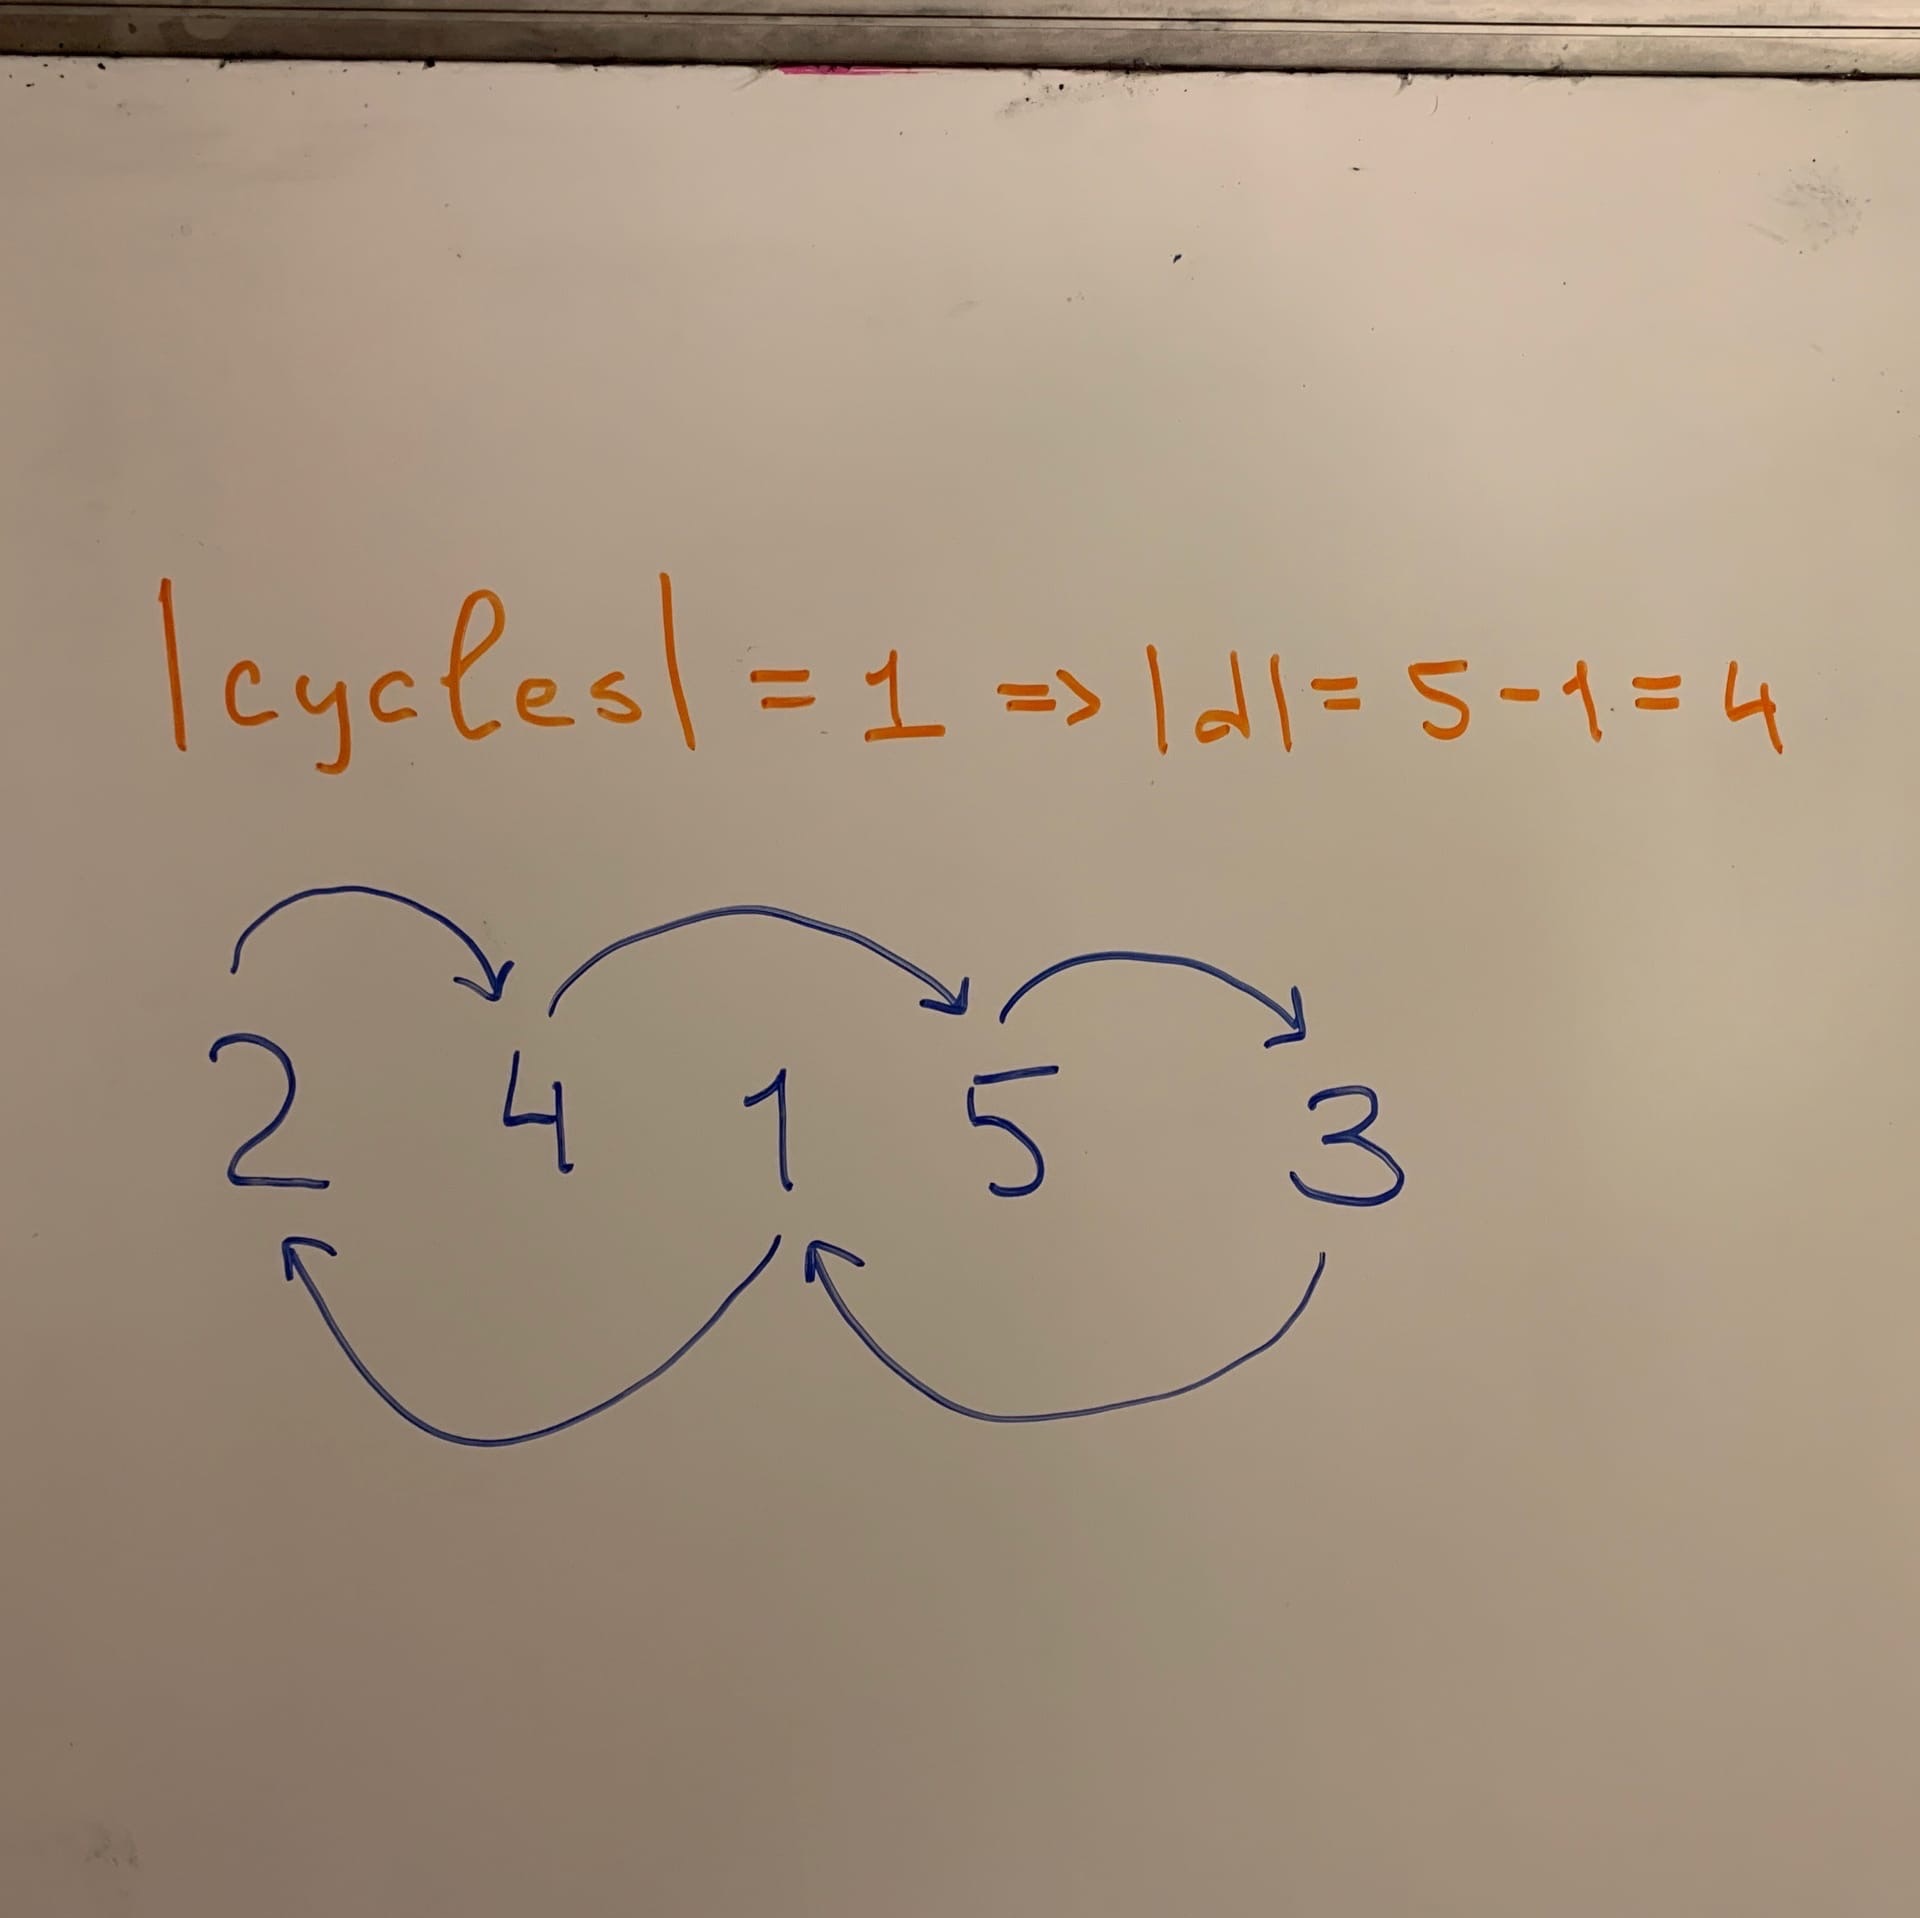 |cycles| = 1 => |d| = 5 - 1 = 4
2 4 1 5 3